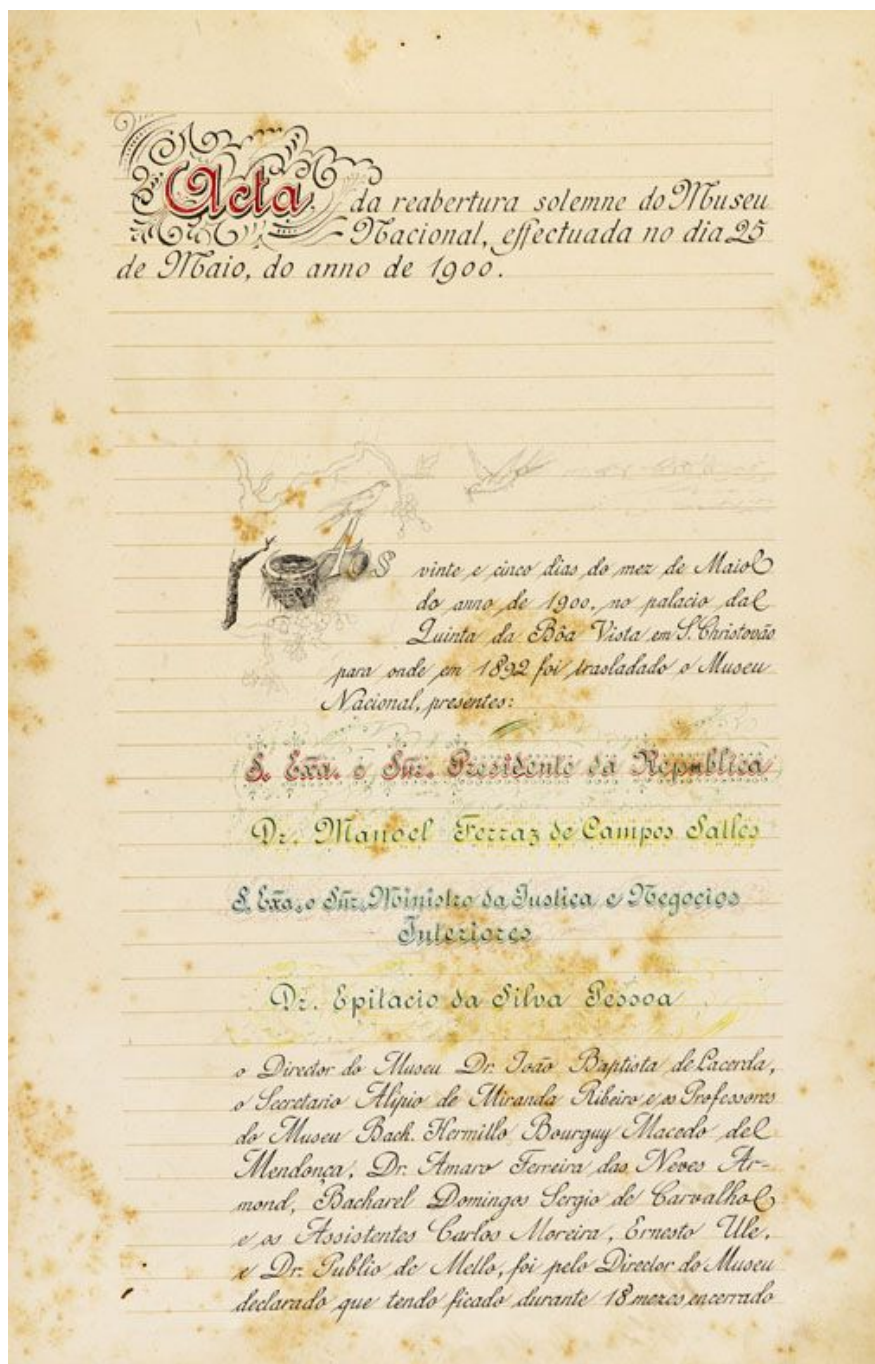 Acta da reabertura solemne do Museu
Nacional, effectuada no dia 25
de Maio, do anno de 1900.
Aos vinte e cinco dias do mez de Maio
do anno de 1900, no palacio da
Quinta da Bôa Vista em S. Christovão
para onde em 1892 foi trasladado o Museu
Nacional, presentes:
S. Exa. o Snr. Presidente da Republica
Dr. Manoel Ferraz de Campos Salles
S. Exa. o Snr. Ministro da Justiça e Negocios
Interiores
Dr. Epitacio da Silva Pessoa
o Director do Museu Dr. João Baptista de Lacerda,
o Secretario Alipio de Miranda Ribeiro e os Professores
do Museu Bach. Hermillo Bourguy Macedo de
Mendonça, Dr. Amaro Ferreira das Neves Ar-
mond, Bacharel Domingos Sergio de Carvalho
e os Assistentes Carlos Moreira, Ernesto Ule,
e Dr. Publio de Mello, foi pelo Director do Museu
declarado que tendo ficado durante 18 mezes encerrado